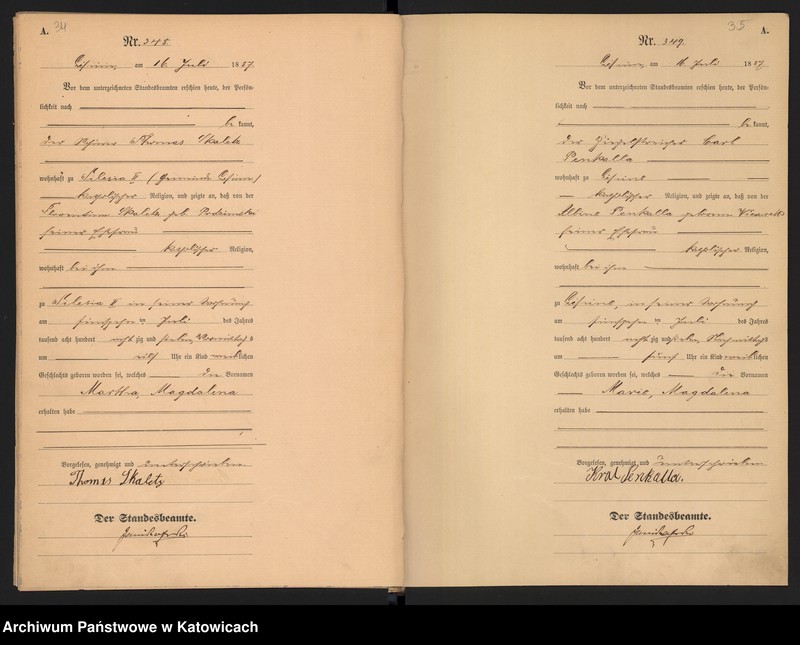 A. 34
Nr. 348.
am 16 Juli 1887.
Vor dem unterzeichneten Standesbeamten erschien heute, der Persön-
lichkeit nach
be kannt,
der Thomas Skaletz
wohnhaft zu Silesia II (Gemeinde
katholischer Religion, und zeigte an, daß von der
Skaletz geb.
seiner Ehefrau
katholischer Religion,
wohnhaft bei ihm
zu Silesia II in seiner Wohnung
am fünfzehnten Juli des Jahres
tausend acht hundert achtzig und sieben, Vormittags
um Uhr ein Kind weiblichen
Geschlechts geboren worden sei, welches die Vornamen
Martha, Magdalena
erhalten habe
Vorgelesen, genehmigt und unterschrieben
Thomas Skaletz
Der Standesbeamte.
35 A.
Nr. 349.
am 16 Juli 1887
Vor dem unterzeichneten Standesbeamten erschien heute, der Persön-
lichkeit nach
be kannt,
der Ziegelstreicher Carl
Penkalla
wohnhaft zu
katholischer Religion, und zeigte an, daß von der
Albine Penkalla geborenen
seiner Ehefrau
katholischer Religion,
wohnhaft bei ihm
zu in seiner Wohnung
am fünfzehnten Juli des Jahres
tausend acht hundert achtzig und sieben, Nachmittags
um fünf Uhr ein Kind weiblichen
Geschlechts geboren worden sei, welches die Vornamen
Marie, Magdalena
erhalten habe
Vorgelesen, genehmigt und unterschrieben
Karal Penkalla.
Der Standesbeamte.
Archiwum Państwowe w Katowicach